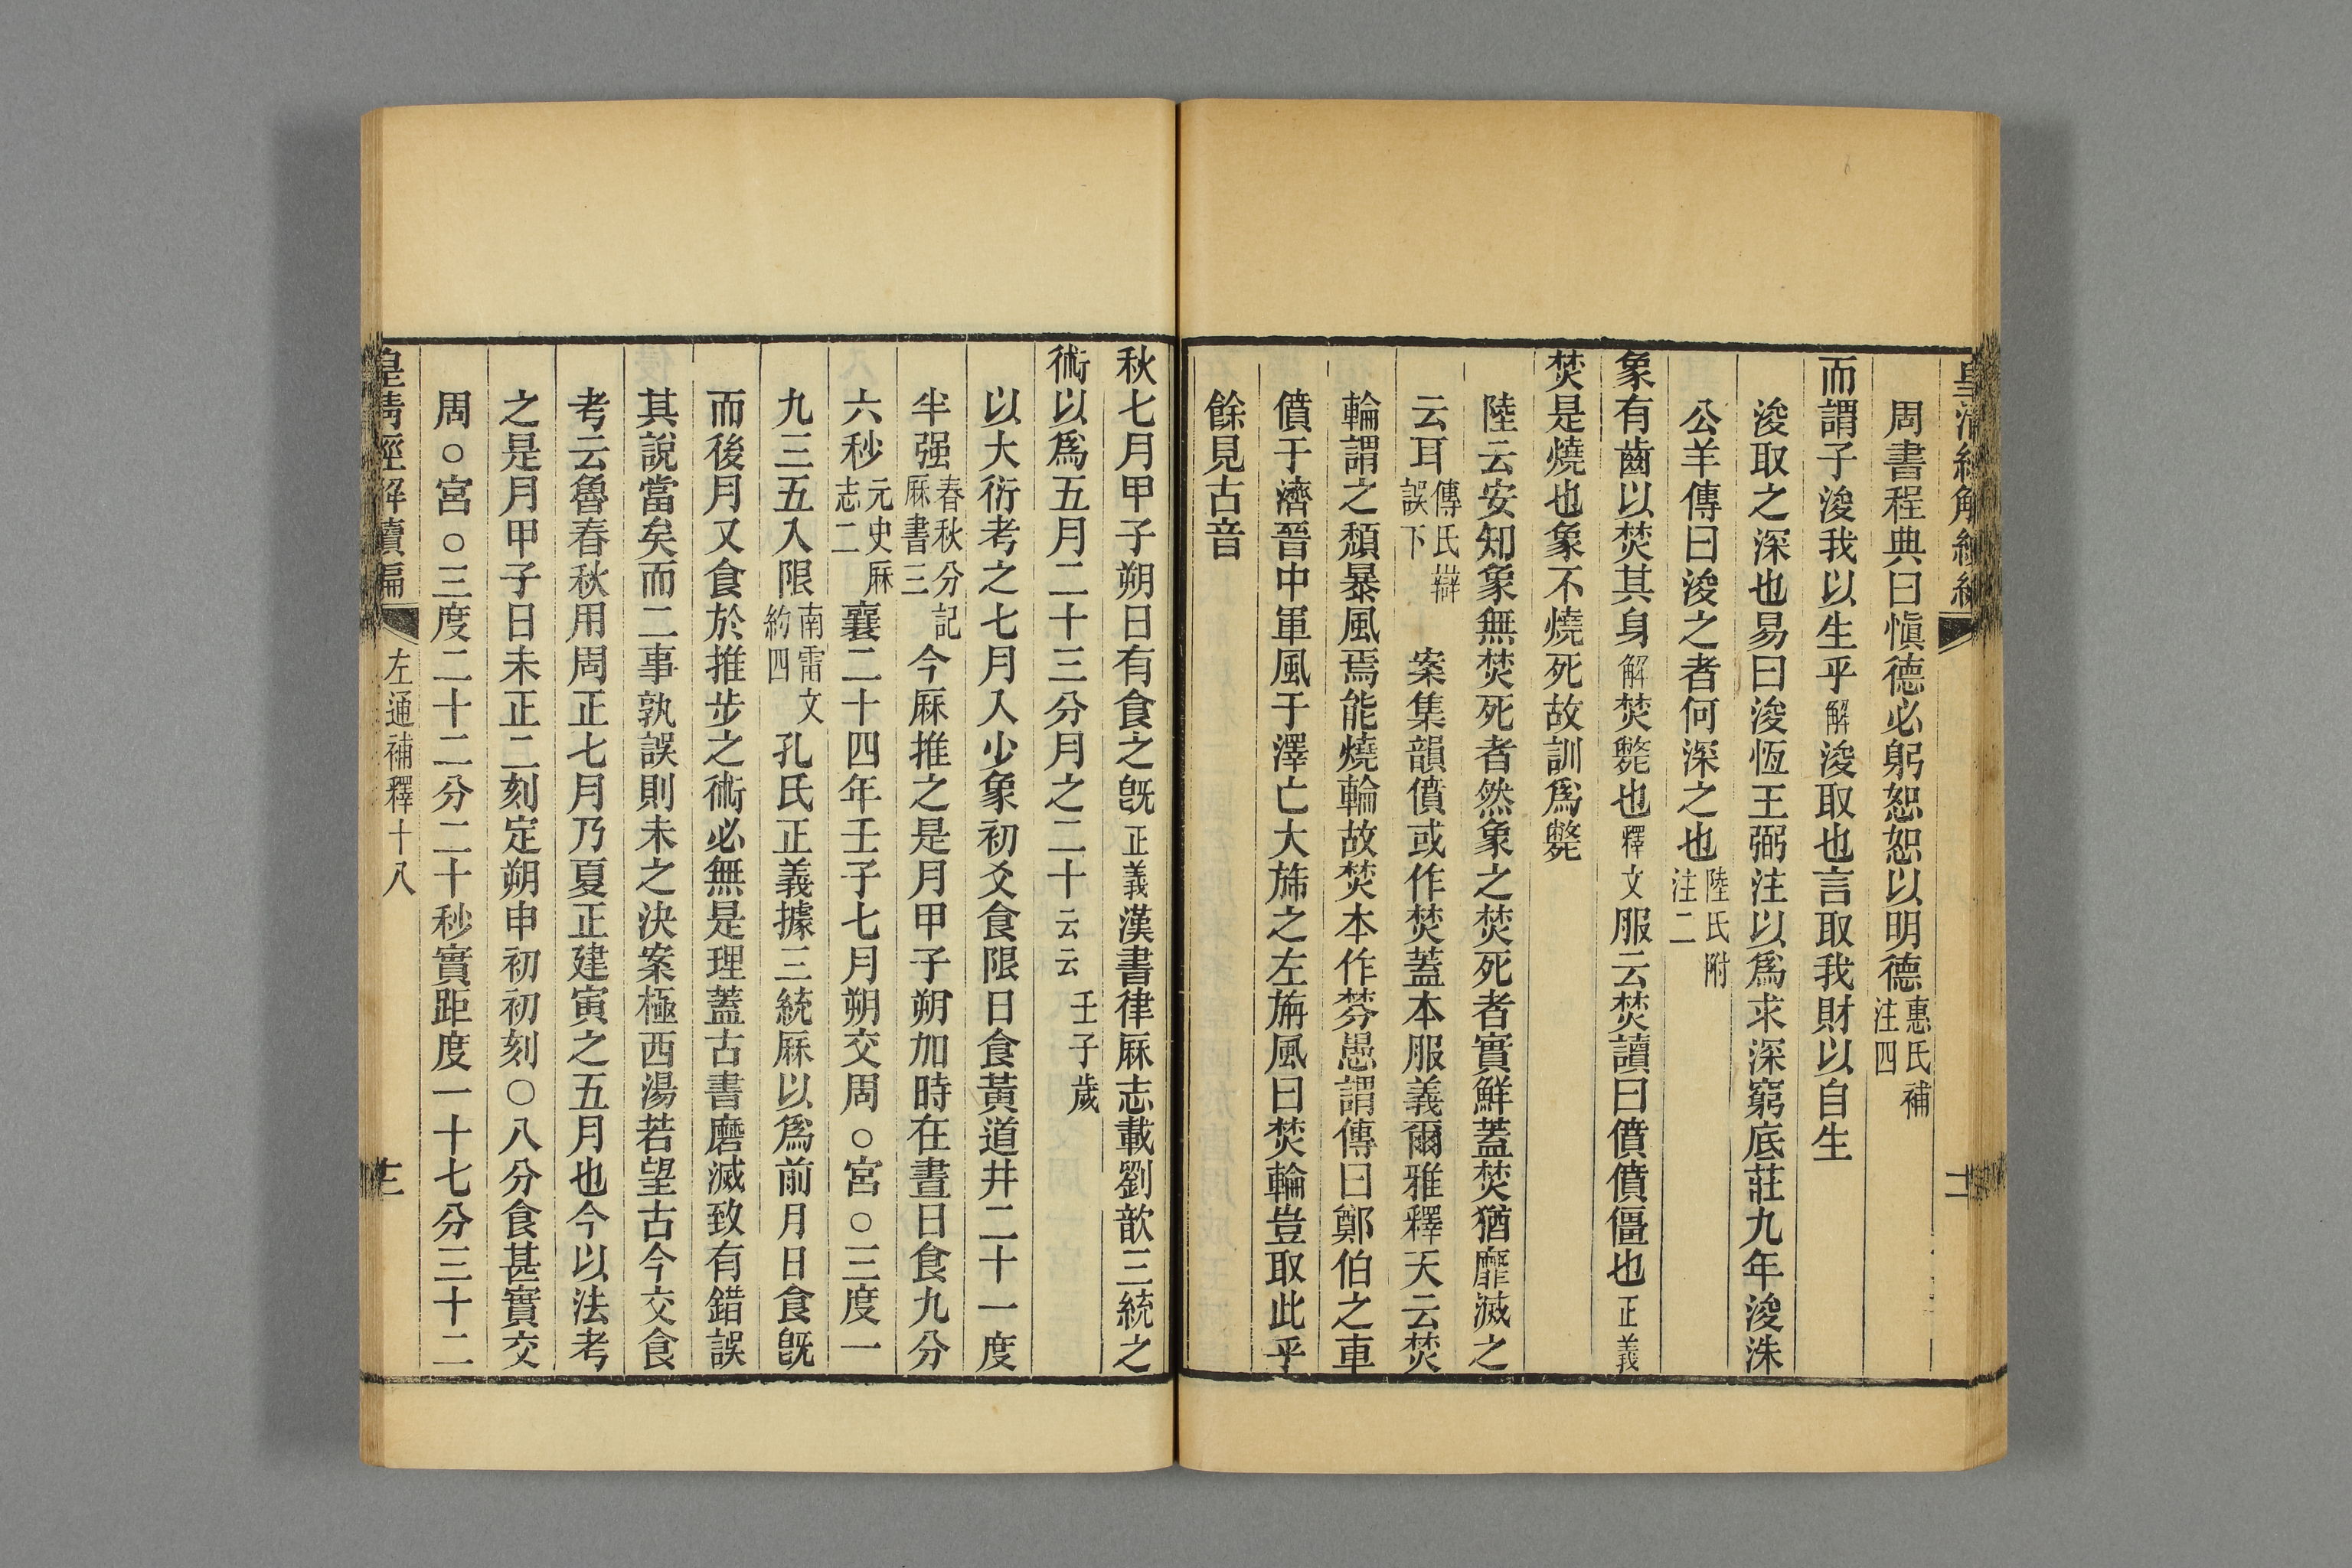 周書程典曰愼德必躬恕恕以明德惠氏補注四
而謂子浚我以生乎解浚取也言取我財以自生
浚取之深也易曰浚恆王弼注以爲求深窮底莊九年浚洙
公羊傳曰浚之者何深之也陸氏附注二
象有齒以焚其身解焚斃也釋文服云焚讀曰僨僨僵也正義
焚是燒也象不燒死故訓爲斃
陸云安知象無焚死者然象之焚死者實鮮蓋焚猶靡滅之
云耳傳氏辯誤下案集韻僨或作焚蓋本服義爾雅釋天云焚
輪謂之穨暴風焉能燒輪故焚本作棼愚謂傳曰鄭伯之車
僨于濟晉中軍風于澤亡大斾之左旃風曰焚輪豈取此乎
餘見古音
秋七月甲子朔日有食之旣正義漢書律厤志載劉歆三統之
術以爲五月二十三分月之二十云云壬子歲
以大衍考之七月入少象初爻食限日食黃道井二十一度
半强春秋分記厤書三今厤推之是月甲子朔加時在晝日食九分
六秒元史厤志二襄二十四年壬子七月朔交周○宮○三度一
九三五入限南雷文約四孔氏正義據三統厤以爲前月日食旣
而後月又食於推步之術必無是理蓋古書磨滅致有錯誤
其說當矣而二事孰誤則未之決案極西湯若望古今交食
考云魯春秋用周正七月乃夏正建寅之五月也今以法考
之是月甲子日未正二刻定朔申初初刻○八分食甚實交
周○宮○三度二十二分二十秒實距度一十七分三十二
皇清經解續編
左通補釋十八